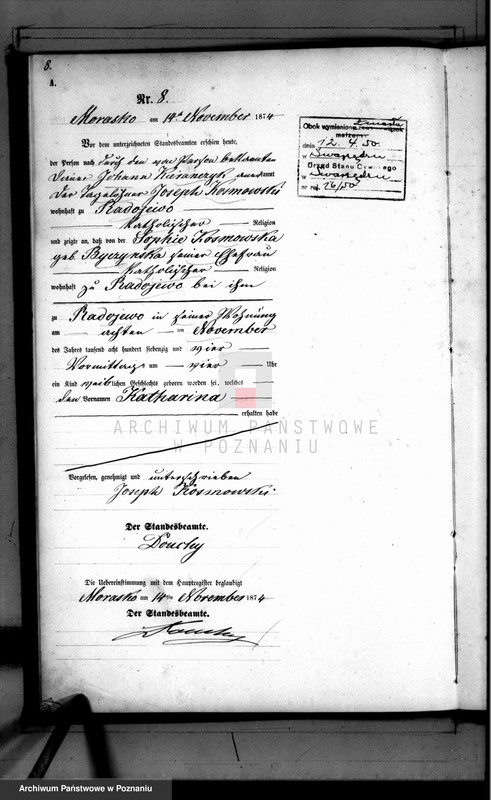 8.
A.
Nr. 8.
Morasko am 14ten November 1874
Vor dem unterzeichneten Standesbeamten erschien heute,
der Person nach durch den von Person bekannten
Johana anerkannt
der Tagelöhner Joseph Kosmowski
wohnhaft zu Radojewo
katholischer Religion
und zeigte an, daß von der Sophie Kosmowska
geb. Byczynska seiner Ehefrau
katholischer Religion
wohnhaft zu Radojewo bei ihm
zu Radojewo in seiner Wohnung
am achten ten November
des Jahres tausend acht hundert siebenzig und vier
Vormittags um vier Uhr
ein Kind weiblichen Geschlechts geboren worden sei, welches
den Vornamen Katharina
erhalten habe
Vorgelesen, genehmigt und unterschrieben
Joseph Kosmowski
Der Standesbeamte.
Douchy
Die Uebereinstimmung mit dem Hauptregister beglaubigt
Morasko am 14ten November 1874
Der Standesbeamte.
Douchy
Obok wymieniona
zmarła
dnia 12.4.50.
w Swarzędzu
Urząd Stanu Cywilnego
w Swarzędzu
nr rej. 26/50
ARCHIWUM PAŃSTWOWE
W POZNANIU
Archiwum Państwowe w Poznaniu